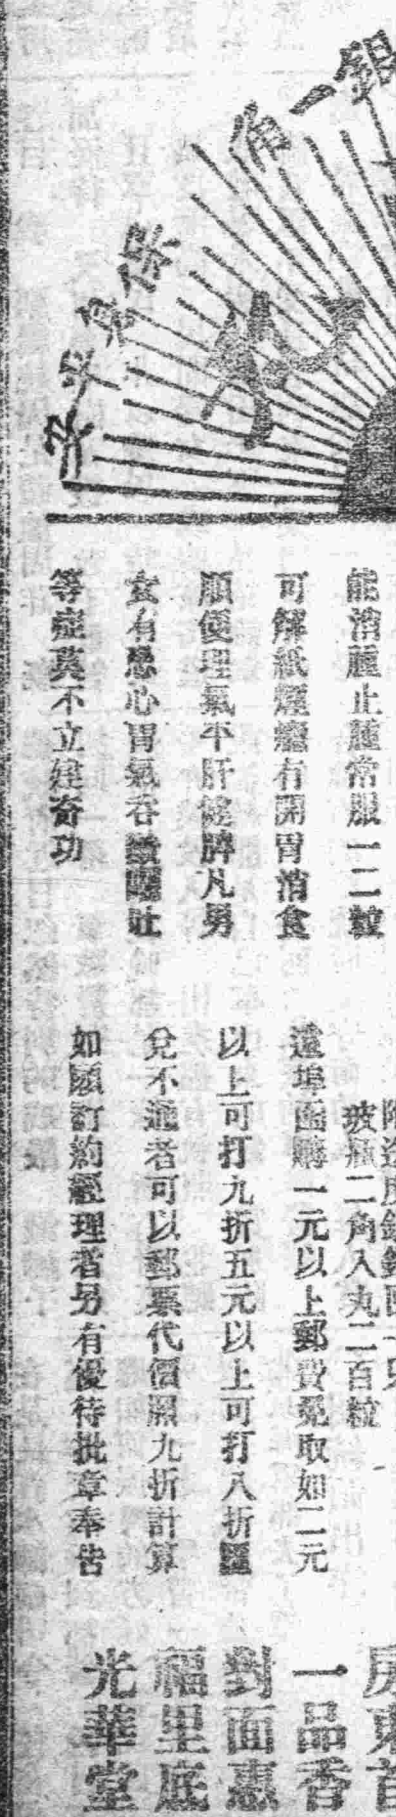 銀一角
保君平安
丸
能消腫止腫常服一二粒
可解紙煙癮有開胃消食
順便理氣平肝健脾凡男
女有患心胃氣吞酸嘔吐
等症莫不立建奇功
玻瓶二角入丸二百粒
遠埠函購一元以上郵費免取如二元
以上可打九折五元以上可打八折匯
兌不通者可以郵票代價照九折計算
如願訂約經理者另有優待批章奉告
房東首
一品香
對面惠
福里底
光華堂